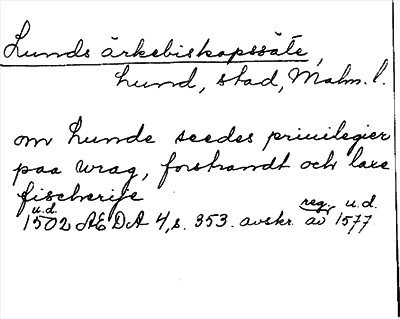 Lunds ärkebiskopssäte,
Lund, stad, Malm. l.
om Lunde seedes priuilegier
paa wrag, forstrandt och laxe
fischerije
u.d. reg. u.d.
1502 AEDA 4, s. 353. avskr. av 1577